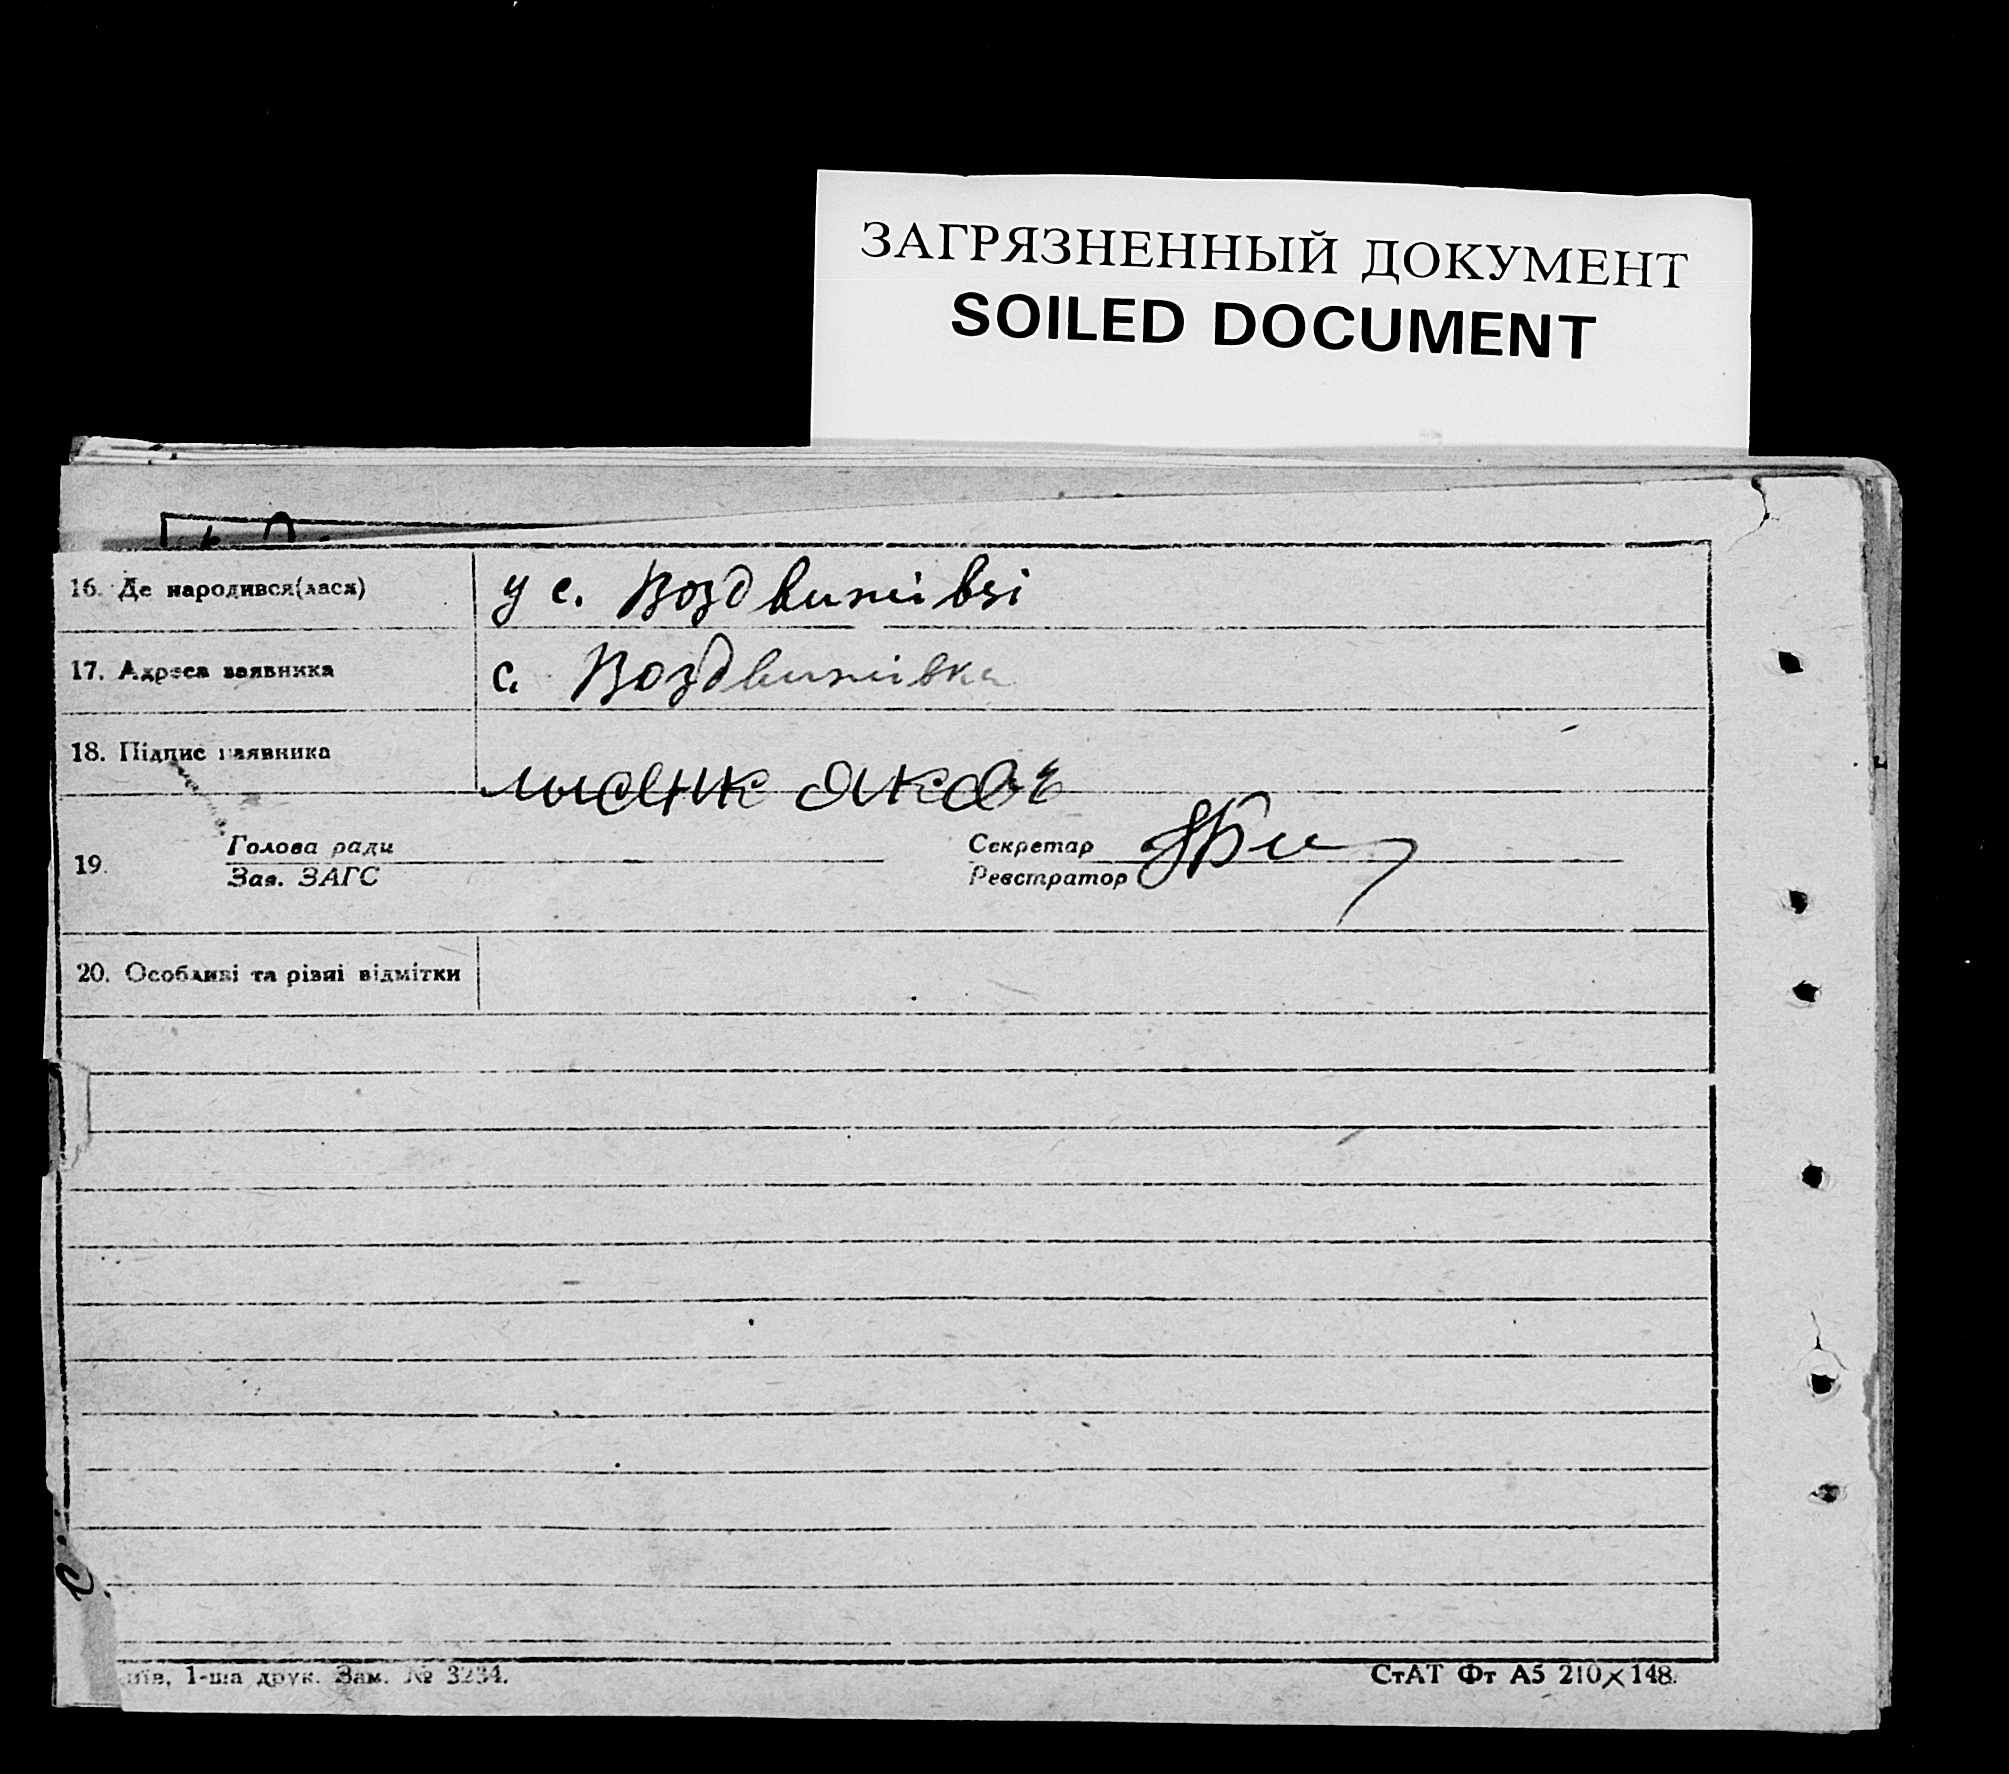 ЗАГРЯЗНЕННЫЙ ДОКУМЕНТ
SOILED DOCUMENT
16. Де народився(лася) у с. Воздвижівці
17. Адреса заявника с. Воздвижівка
18. Підпис заявника лисенк Яков
19. Голова ради Секретар
Зав. ЗАГС Реєстратор
20. Особливі та різні відмітки
1-ша друк. Зам. № 3234. СтАТ Фт А5 210×148.